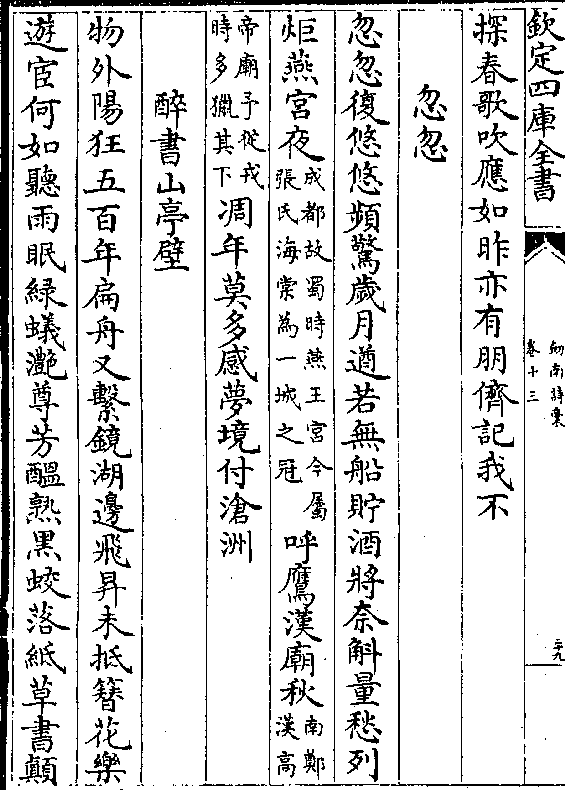 欽定四庫全書
劒南詩稾
卷十三
二十九
探春歌吹應如昨亦有朋儕記我不
忽忽
忽忽復悠悠頻驚歲月遒若無船貯酒將奈斛量愁列
炬燕宮夜成都故蜀時燕王宮今屬張氏海棠為一城之冠呼鷹漢廟秋南鄭漢高
帝廟予從戎時多獵其下凋年莫多感夢境付滄洲
醉書山亭壁
物外陽狂五百年扁舟又繫鏡湖邊飛昇未抵簪花樂
遊宦何如聽雨眠綠蟻灔尊芳醞熟黑蛟落紙草書顛